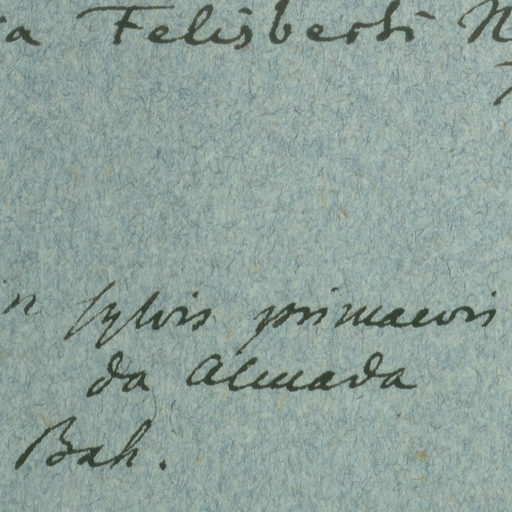 Felisberti
in sylvis primaevis
da Almada
Bah.